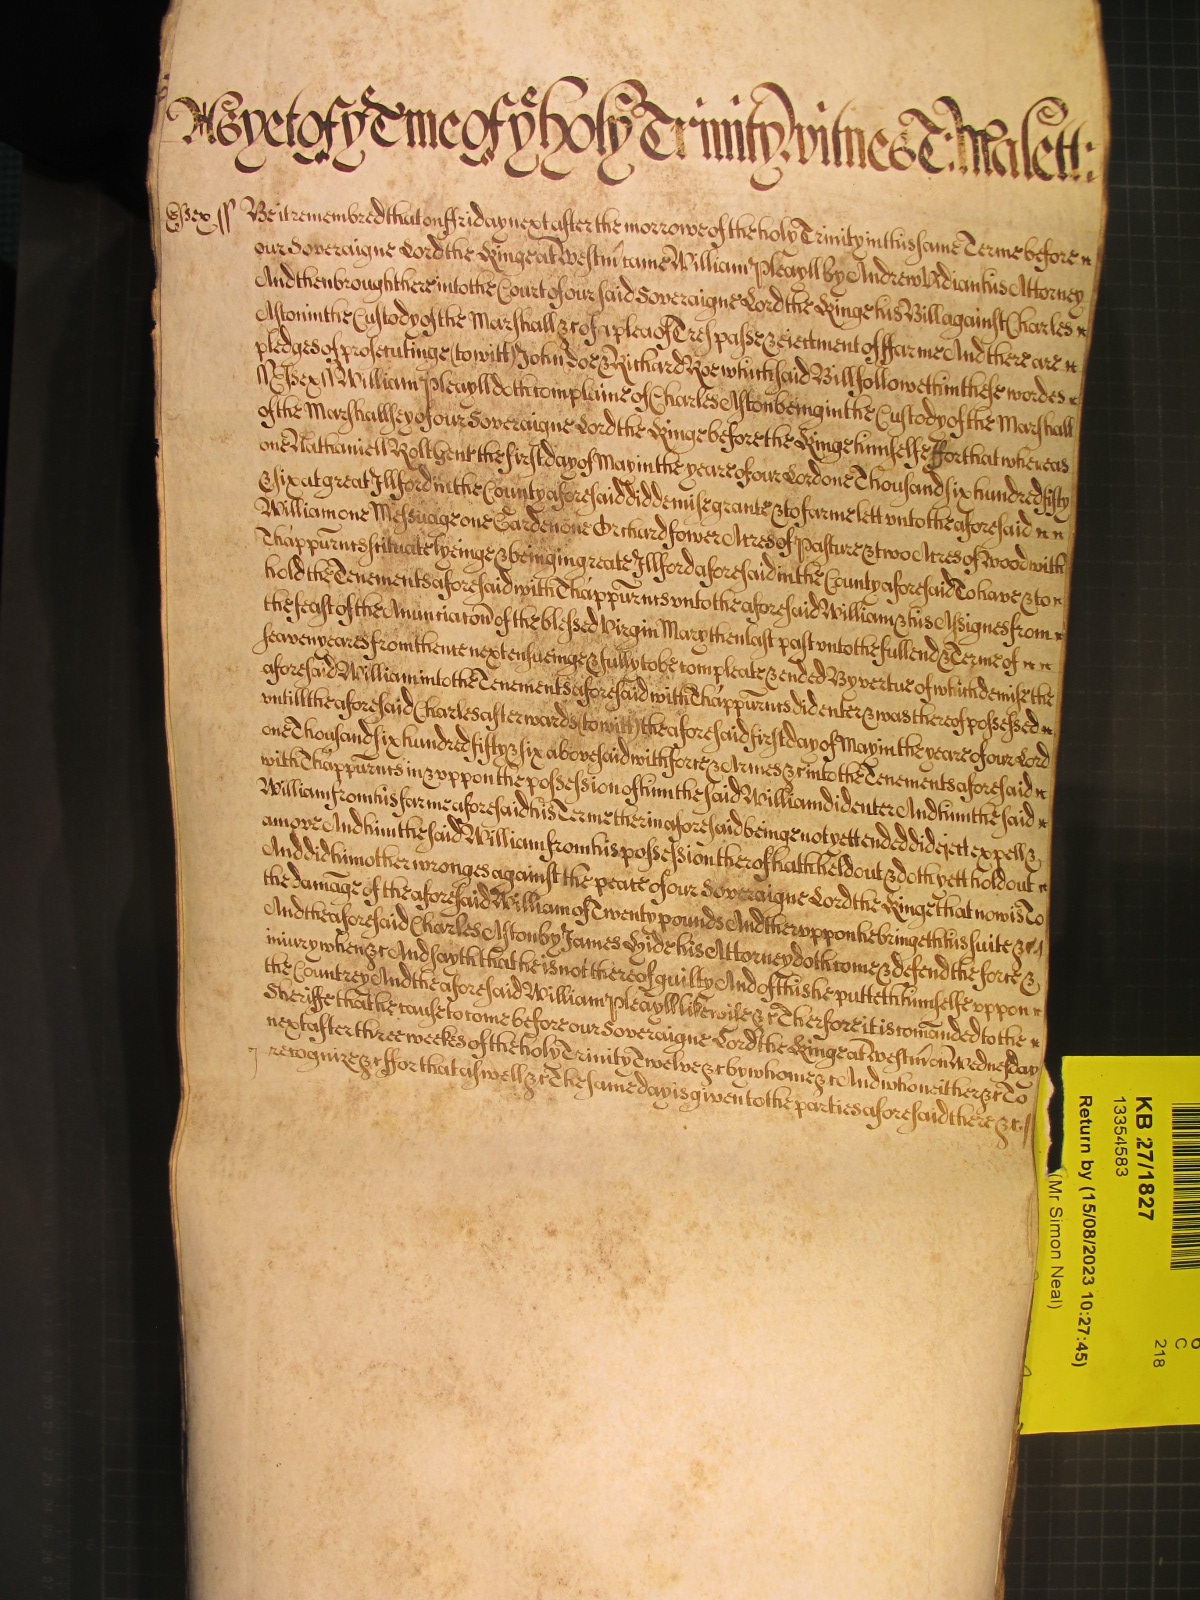 As yet of yͤ Tme of yͤ holy Trinity witnes T: Malett:
Essex ss Be it remembred that on ffriday next after the morrowe of the holy Trinity in this same Terme before
our Soveraigne Lord the Kinge at Westmr came William Pleayll by Andrew Vidian his Attorney
And then brought here into the Court of our said Soveraigne Lord the Kinge his Bill against Charles
Aston in the Custody of the Marshall &c of a plea of Trespasse & eiectment of ffarme And there are
pledges of prosecutinge (to witt) John Doe & Richard Roe which said Bill followeth in these wordes
ss Essex ss William Pleayll doth complaine of Charles Aston being in the Custody of the Marshall
of the Marshallsey of our Soveraigne Lord the Kinge before the Kinge himselfe ffor that whereas
one Nathaniell Rolt hent the first day of May in the yeare of our Lord one Thousand six hundred fifty
& six at great Illford in the County aforesaid did demise grante & to farme lett vnto the aforesaid
William one Messuage one Garden one Orchard fower Acres of Pasture & two Acres of Wood with
Th'appurntts scituate lyeinge & being in greate Illford aforesaid in the County aforesaid To have & to
hold the Tenements aforesaid with Th'appurntts vnto the aforesaid William & his Assignes from
the feast of the Anunciacon of the blessed Virgin Mary then last past vnto the full end & Terme of
seaven yeares from thence next ensueinge & fully to be compleate & ended By vertue of which demise the
aforesaid William into the Tenements aforesaid with Th'appurntts did enter & was thereof possessed
vntill the aforesaid Charles afterwards (to witt) the aforesaid first day of May in the yeare of our Lord
one Thousand six hundred fifty & six abovesaid with force & Armes &c into the Tenements aforesaid
with Th'appurntts in & vppon the possession of him the said William did enter And him the said
William from his farme aforesaid his Terme therin aforesaid beinge not yett ended did eiect expell &
amove And him the said William from his possession therof hath held out & doth yett hold out
And did him other wronges against the peace of our Soveraigne Lord the Kinge that now is To
the damage of the aforesaid William of Twenty pounds And thervppon he bringeth his suite &c
And the aforesaid Charles Aston by James Lyde his Attorney doth come & defend the force &
iniury when &c And sayth that he is not thereof guilty And of this he putteth himselfe vppon
the Countrey And the aforesaid William Pleayll likewise &c Therfore it is comanded to the
Sheriffe that he cause to come before our Soveraigne Lord the Kinge at Westmr on Wednesday
next after three weekes of the holy Trinity Twelve &c by whome &c And who neither &c To
recognize &c ffor that aswell &c The same day is given to the parties aforesaid there &c
KB 27/1827
13354583
Return by (15/08/2023 10:27:45)
(Mr Simon Neal)
6
C
218